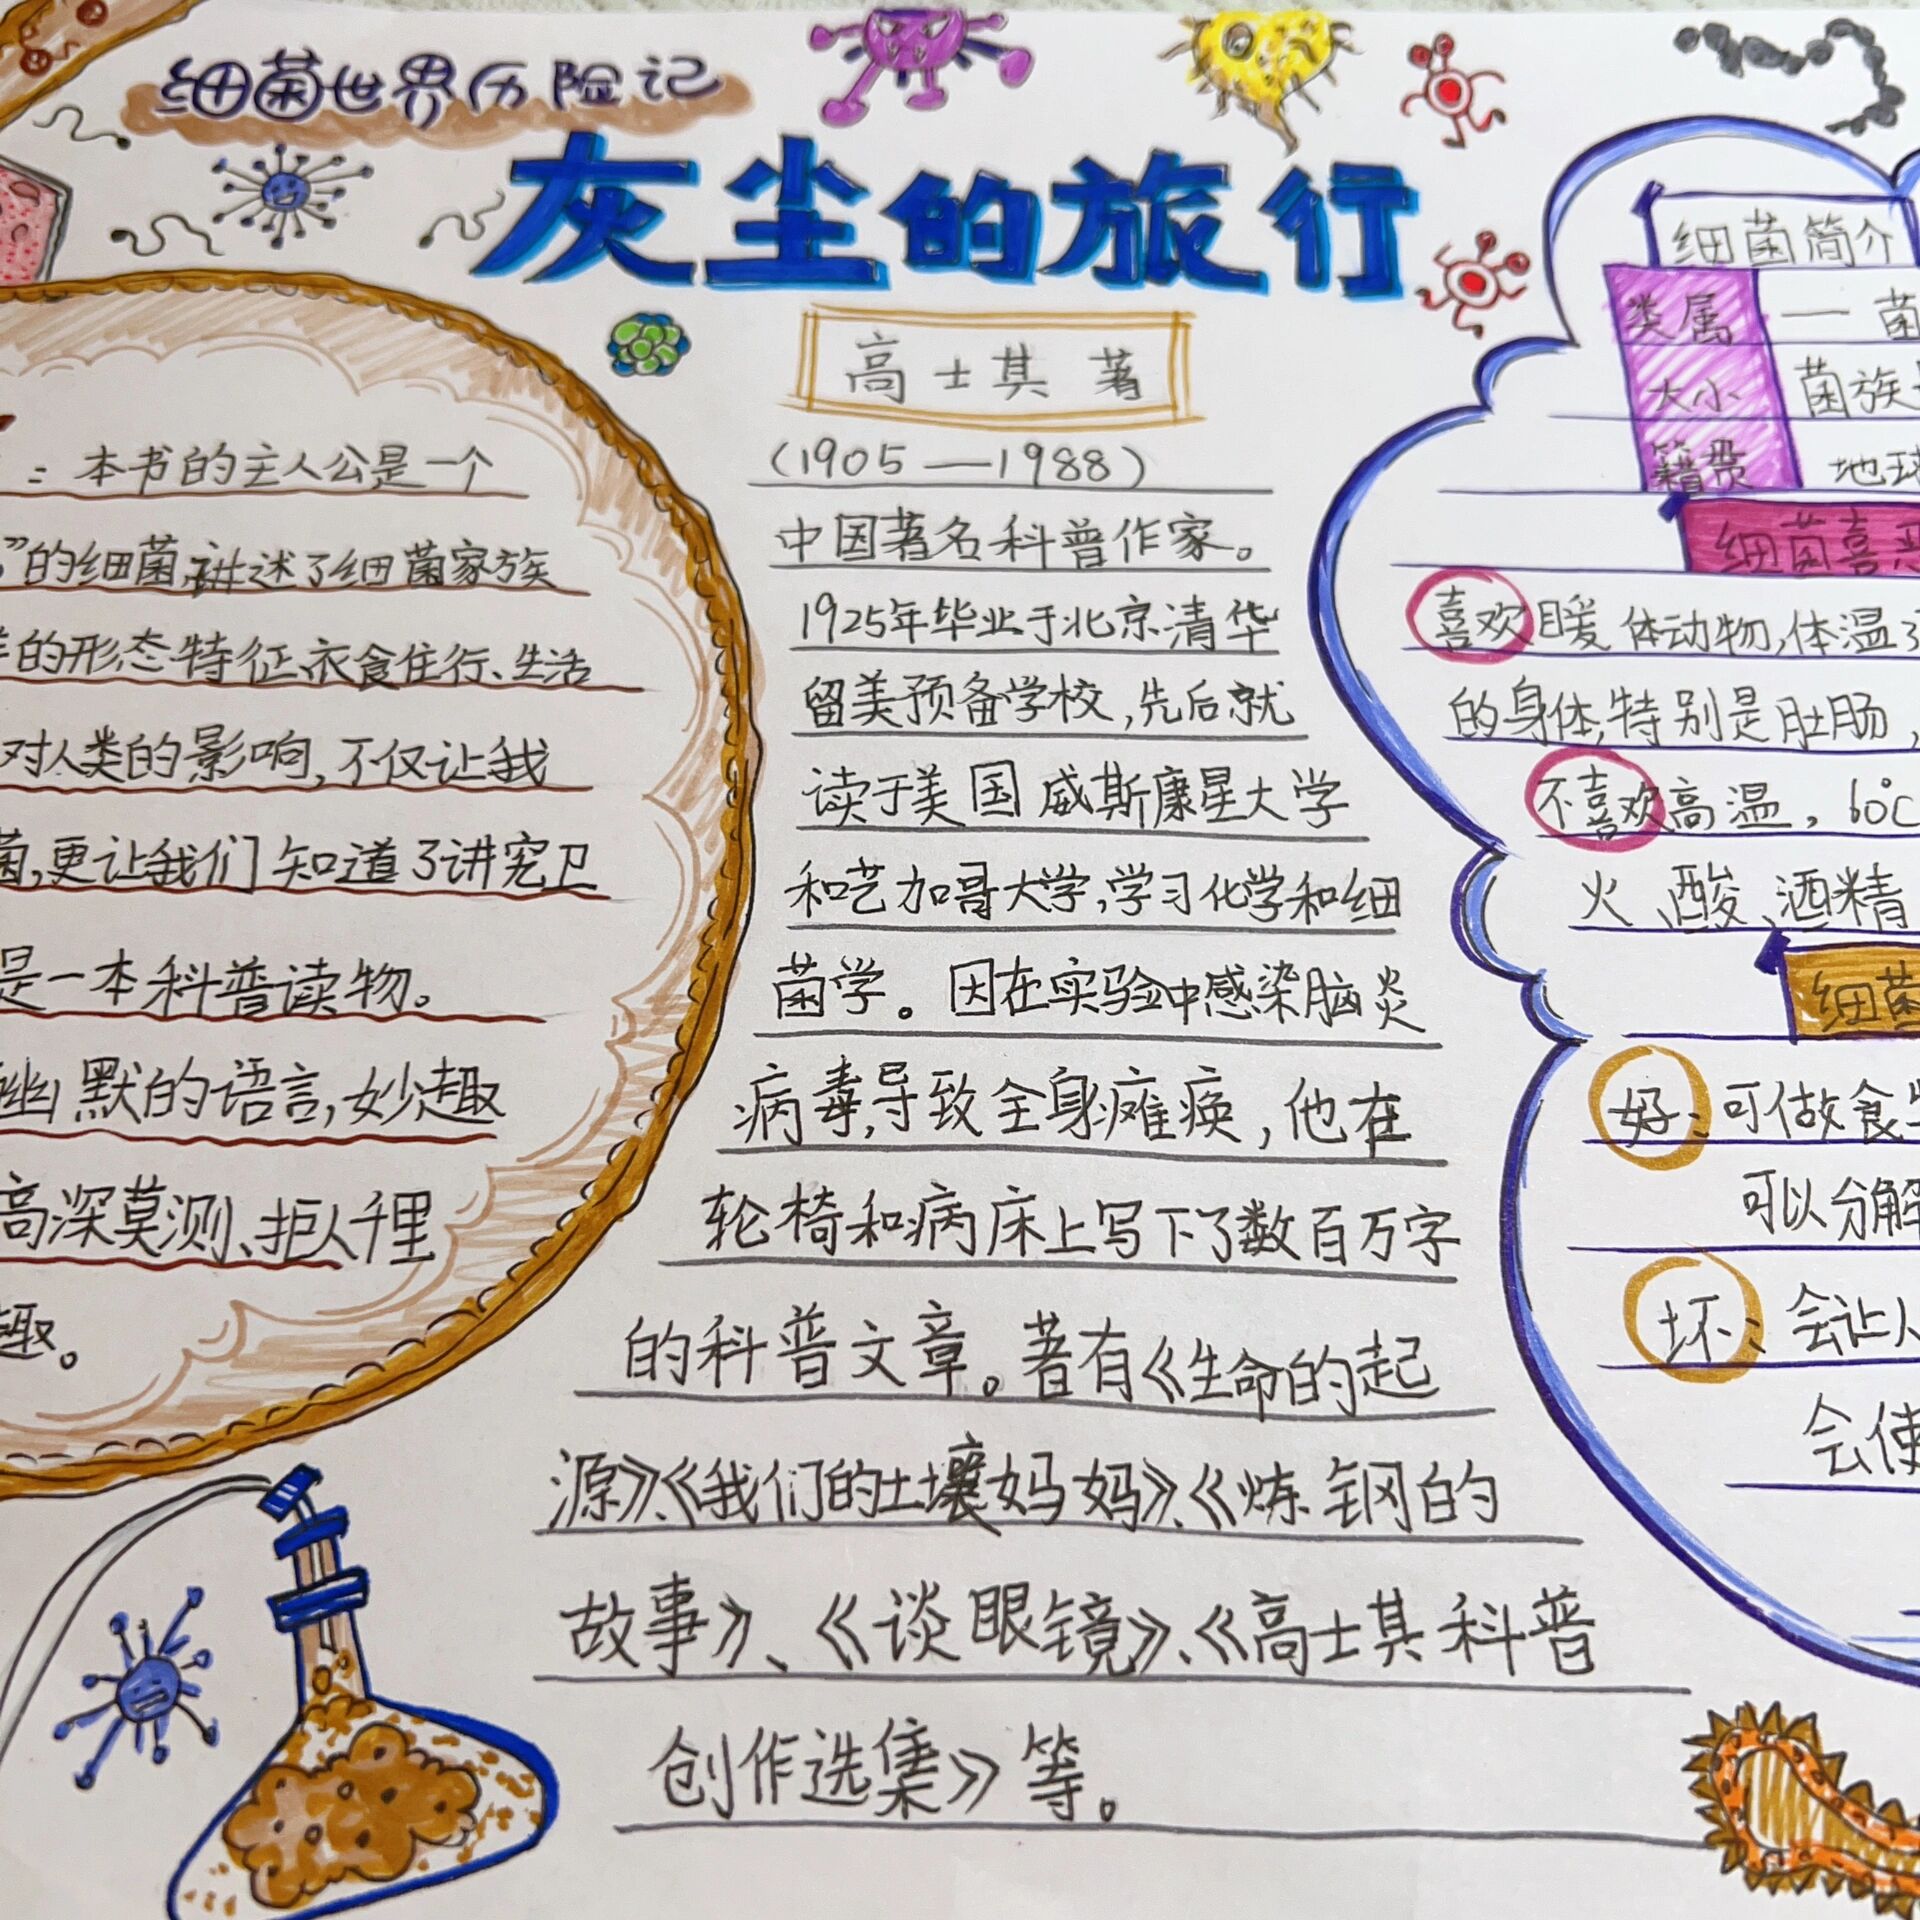 细菌世界历险记
灰尘的旅行
高士其 著
(1905—1988)
中国著名科普作家。
1925年毕业于北京清华
留美预备学校,先后就
读于美国威斯康星大学
和艺加哥大学,学习化学和细
菌学。因在实验中感染脑炎
病毒,导致全身瘫痪,他在
轮椅和病床上写下了数百万字
的科普文章。著有《生命的起
源》、《我们的土壤妈妈》、《炼钢的
故事》、《谈眼镜》、《高士其科普
创作选集》等。
:本书的主人公是一个
”的细菌,讲述了细菌家族
的形态特征、衣食住行、生活
对人类的影响,不仅让我
菌,更让我们知道了讲究卫
是一本科普读物。
幽默的语言,妙趣
高深莫测、拒人千里
趣。
细菌简介
类属 一菌
大小 菌族
籍贯 地球
细菌喜恶
喜欢暖体动物,体温
的身体,特别是肚肠,
不喜欢高温,60℃
火、酸、酒精
细菌
好:可做食
可以分解
坏:会让人
会使